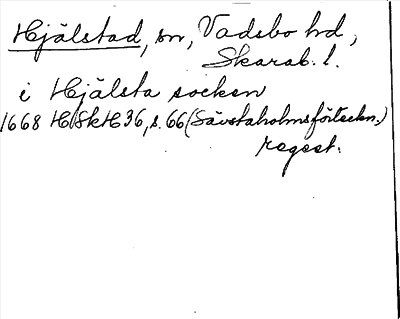 Hjälstad, sn, Vadsbo hd,
Skarab. l.
i Hjälsta socken
1668 HSkH 36, s. 66 (Sävstaholmsförteckn.)
regest.